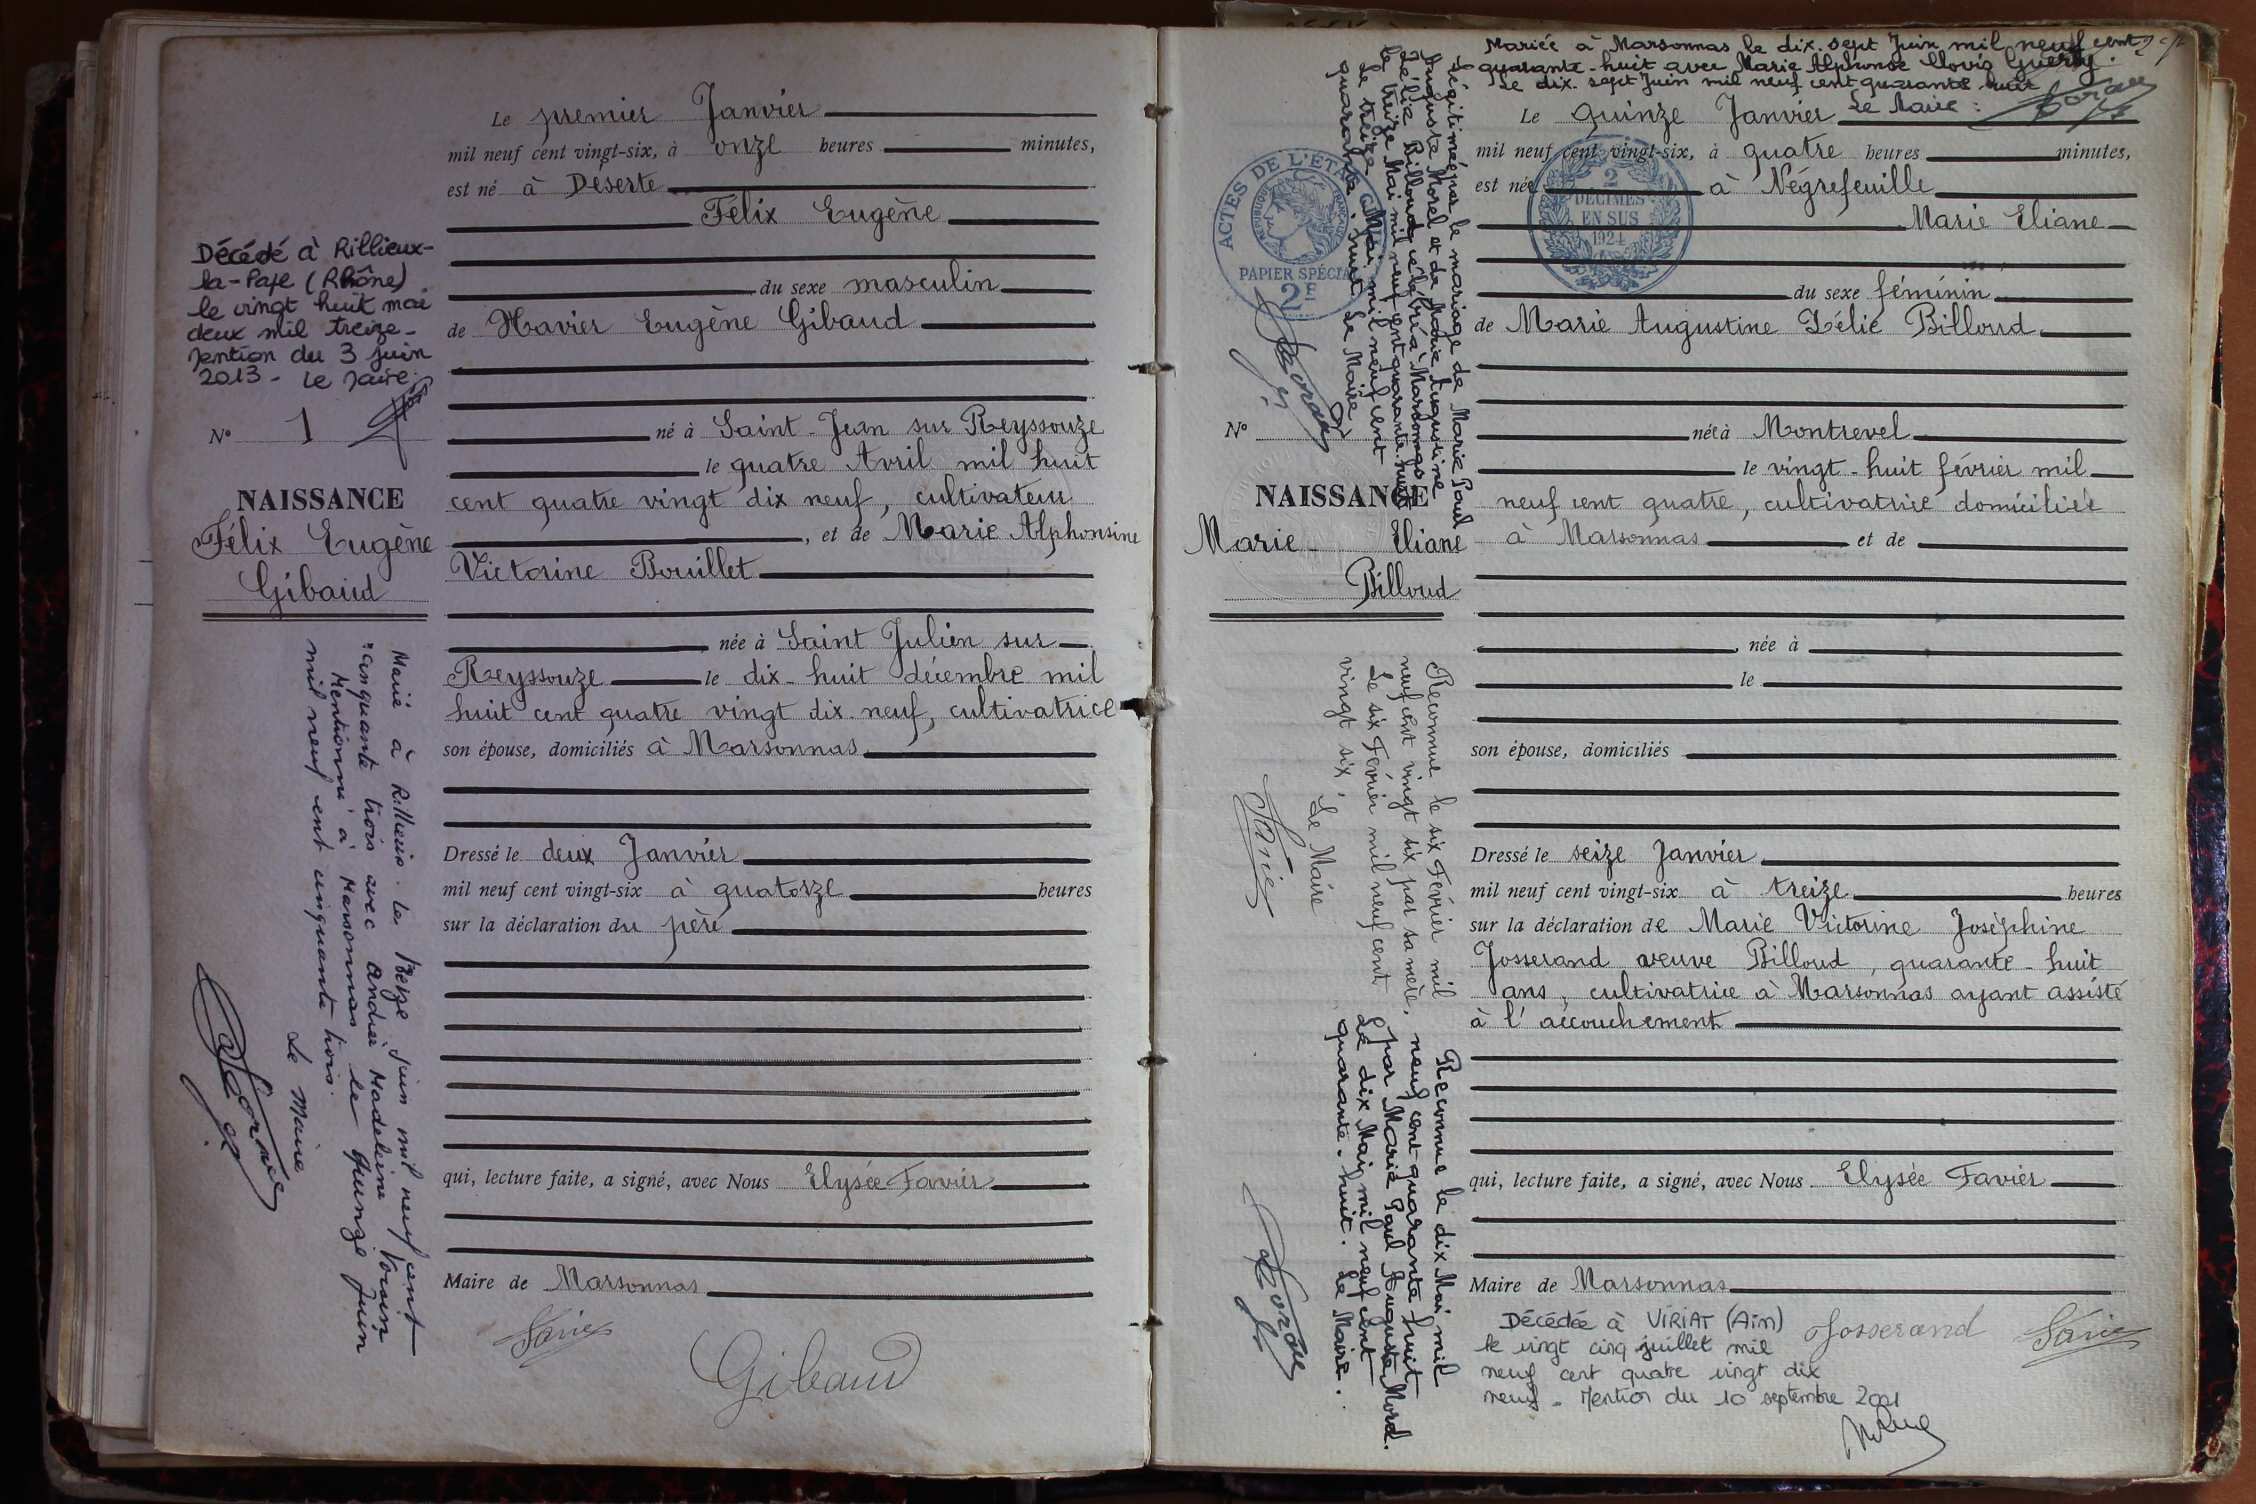 Le premier Janvier
mil neuf cent vingt-six, à onze heures minutes,
est né à Déserte
Félix Eugène
du sexe masculin
de Xavier Eugène Gibaud
né à Saint-Jean sur Reyssouze
le quatre Avril mil huit
cent quatre vingt dix neuf, cultivateur
, et de Marie Alphonsine
Victorine Bouillet
née à Saint Julien sur
Reyssouze le dix-huit décembre mil
huit cent quatre vingt dix-neuf, cultivatrice
son épouse, domiciliés à Marsonnas
Dressé le deux Janvier
mil neuf cent vingt-six à quatorze heures
sur la déclaration du père
qui, lecture faite, a signé, avec Nous Elysée Favier
Maire de Marsonnas
Favier
Gibaud
Décédé à Rillieux-
la-Pape (Rhône)
le vingt huit mai
deux mil treize-
Mention du 3 juin
2013 - Le Maire.
N° 1
NAISSANCE
Félix Eugène
Gibaud
Marié à Rillieux le treize Juin mil neuf cent
cinquante trois avec Andrée Madeleine Voisin
Mentionné à Marsonnas le quinze Juin
mil neuf cent cinquante trois.
Le Maire
Mariée à Marsonnas le dix-sept Juin mil neuf cent
quarante-huit avec Marie Alphonse Clovis Guerry.
Le dix-sept Juin mil neuf cent quarante-huit
Le Maire :
Le quinze Janvier
mil neuf cent vingt-six, à quatre heures minutes,
est née à Négrefeuille
Marie Eliane
du sexe féminin
de Marie Augustine Zélie Billoud
née à Montrevel
le vingt-huit février mil
neuf cent quatre, cultivatrice domiciliée
à Marsonnas et de
, née à
le
son épouse, domiciliés
Dressé le seize Janvier
mil neuf cent vingt-six à treize heures
sur la déclaration de Marie Victorine Joséphine
Josserand veuve Billoud, quarante-huit
ans, cultivatrice à Marsonnas ayant assisté
à l'accouchement
qui, lecture faite, a signé, avec Nous Elysée Favier
Maire de Marsonnas
Josserand
Favier
Décédée à VIRIAT (Ain)
le vingt cinq juillet mil
neuf cent quatre vingt dix
neuf - Mention du 10 septembre 2001
Légitimée par le mariage de Marie Paul
Auguste Morel et de Marie Augustine
Zélie Billoud, célébré à Marsonnas
le treize Mai mil neuf cent quarante-huit
Le treize Mai mil neuf cent
quarante-huit Le Maire
ACTES DE L'ETAT
RÉPUBLIQUE FRANÇAISE
PAPIER SPÉCIAL
2F
2
DÉCIMES
EN SUS
1924
N°
NAISSANCE
Marie - Eliane
Billoud
Reconnue le six Février mil
neuf cent vingt six par sa mère,
Le six Février mil neuf cent
vingt six, Le Maire
Favier
Reconnue le dix Mai mil
neuf cent quarante huit
par Marie Paul Auguste Morel.
Le dix Mai mil neuf cent
quarante-huit. Le Maire.